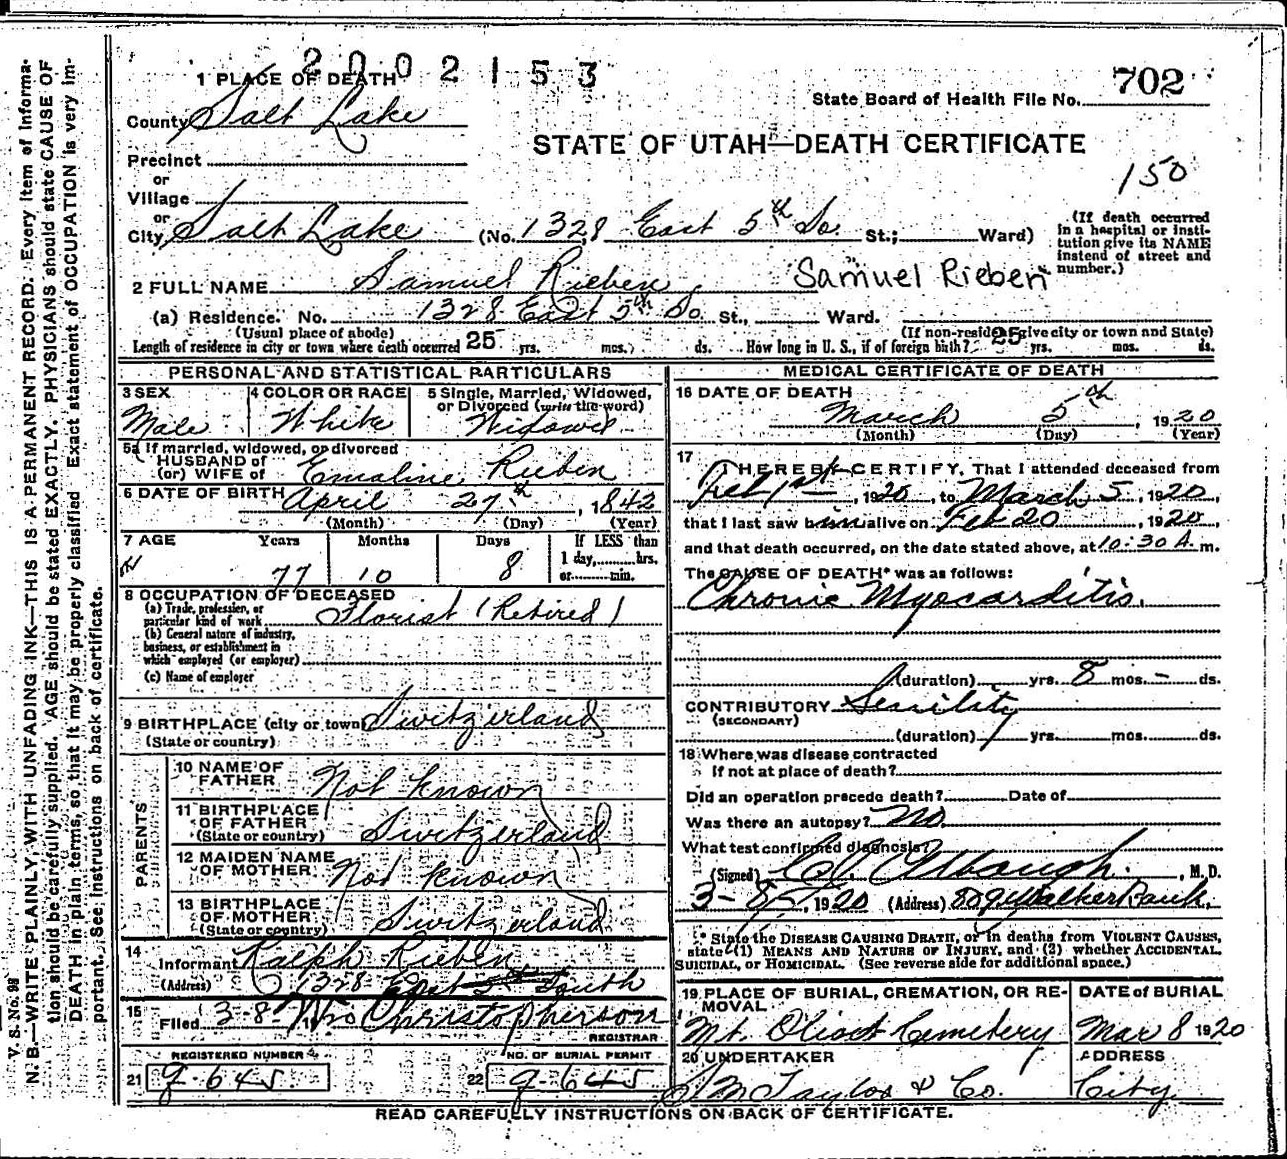 2002153
1 PLACE OF DEATH
702
State Board of Health File No.
County Salt Lake
STATE OF UTAH—DEATH CERTIFICATE
Precinct
or
150
Village
or
City Salt Lake (No. 1328 East 5th So. St.; Ward)
(If death occurred in a hospital or institution give its NAME instead of street and number.)
2 FULL NAME Samuel Rieben Samuel Rieben
(a) Residence. No. 1328 East 5th So. St., Ward.
(Usual place of abode) (If non-resident give city or town and State)
Length of residence in city or town where death occurred 25 yrs. mos. ds. How long in U. S., if of foreign birth? 25 yrs. mos. ds.
PERSONAL AND STATISTICAL PARTICULARS
3 SEX 4 COLOR OR RACE 5 Single, Married, Widowed, or Divorced (write the word)
Male White Widowed
5a If married, widowed, or divorced
HUSBAND of
(or) WIFE of Emaline Rieben
6 DATE OF BIRTH April 27th, 1842
(Month) (Day) (Year)
7 AGE Years Months Days If LESS than
1 day, hrs.
or min.
77 10 8
8 OCCUPATION OF DECEASED
(a) Trade, profession, or
particular kind of work Florist (Retired)
(b) General nature of industry,
business, or establishment in
which employed (or employer)
(c) Name of employer
9 BIRTHPLACE (city or town) Switzerland
(State or country)
PARENTS
10 NAME OF
FATHER Not known
11 BIRTHPLACE
OF FATHER
(State or country) Switzerland
12 MAIDEN NAME
OF MOTHER Not known
13 BIRTHPLACE
OF MOTHER
(State or country) Switzerland
14
Informant Ralph Rieben
(Address) 1328 East 5th South
15
Filed 3-8- Wm Christopherson
REGISTRAR
REGISTERED NUMBER NO. OF BURIAL PERMIT
21 g-645 22 g-645
MEDICAL CERTIFICATE OF DEATH
16 DATE OF DEATH
March 5th, 1920
(Month) (Day) (Year)
17
I HEREBY CERTIFY, That I attended deceased from
Feb 1st, 1920, to March 5, 1920,
that I last saw him alive on Feb 20, 1920,
and that death occurred, on the date stated above, at 10:30 A. m.
The CAUSE OF DEATH* was as follows:
Chronic Myocarditis.
(duration) yrs. 8 mos. - ds.
CONTRIBUTORY Senility
(SECONDARY)
(duration) yrs. mos. ds.
18 Where was disease contracted
If not at place of death?
Did an operation precede death? Date of
Was there an autopsy? No
What test confirmed diagnosis?
(Signed) , M.D.
3-8-, 1920 (Address) 809 Walker Bank.
* State the DISEASE CAUSING DEATH, or in deaths from VIOLENT CAUSES,
state (1) MEANS AND NATURE OF INJURY, and (2) whether ACCIDENTAL,
SUICIDAL, or HOMICIDAL. (See reverse side for additional space.)
19 PLACE OF BURIAL, CREMATION, OR REMOVAL DATE of BURIAL
Mt. Olivet Cemetery Mar 8 1920
20 UNDERTAKER ADDRESS
S M Taylor & Co. City
READ CAREFULLY INSTRUCTIONS ON BACK OF CERTIFICATE.
V. S. No. 98
N. B.—WRITE PLAINLY, WITH UNFADING INK—THIS IS A PERMANENT RECORD. Every item of informa-
tion should be carefully supplied. AGE should be stated EXACTLY. PHYSICIANS should state CAUSE OF
DEATH in plain terms, so that it may be properly classified. Exact statement of OCCUPATION is very im-
portant. See instructions on back of certificate.